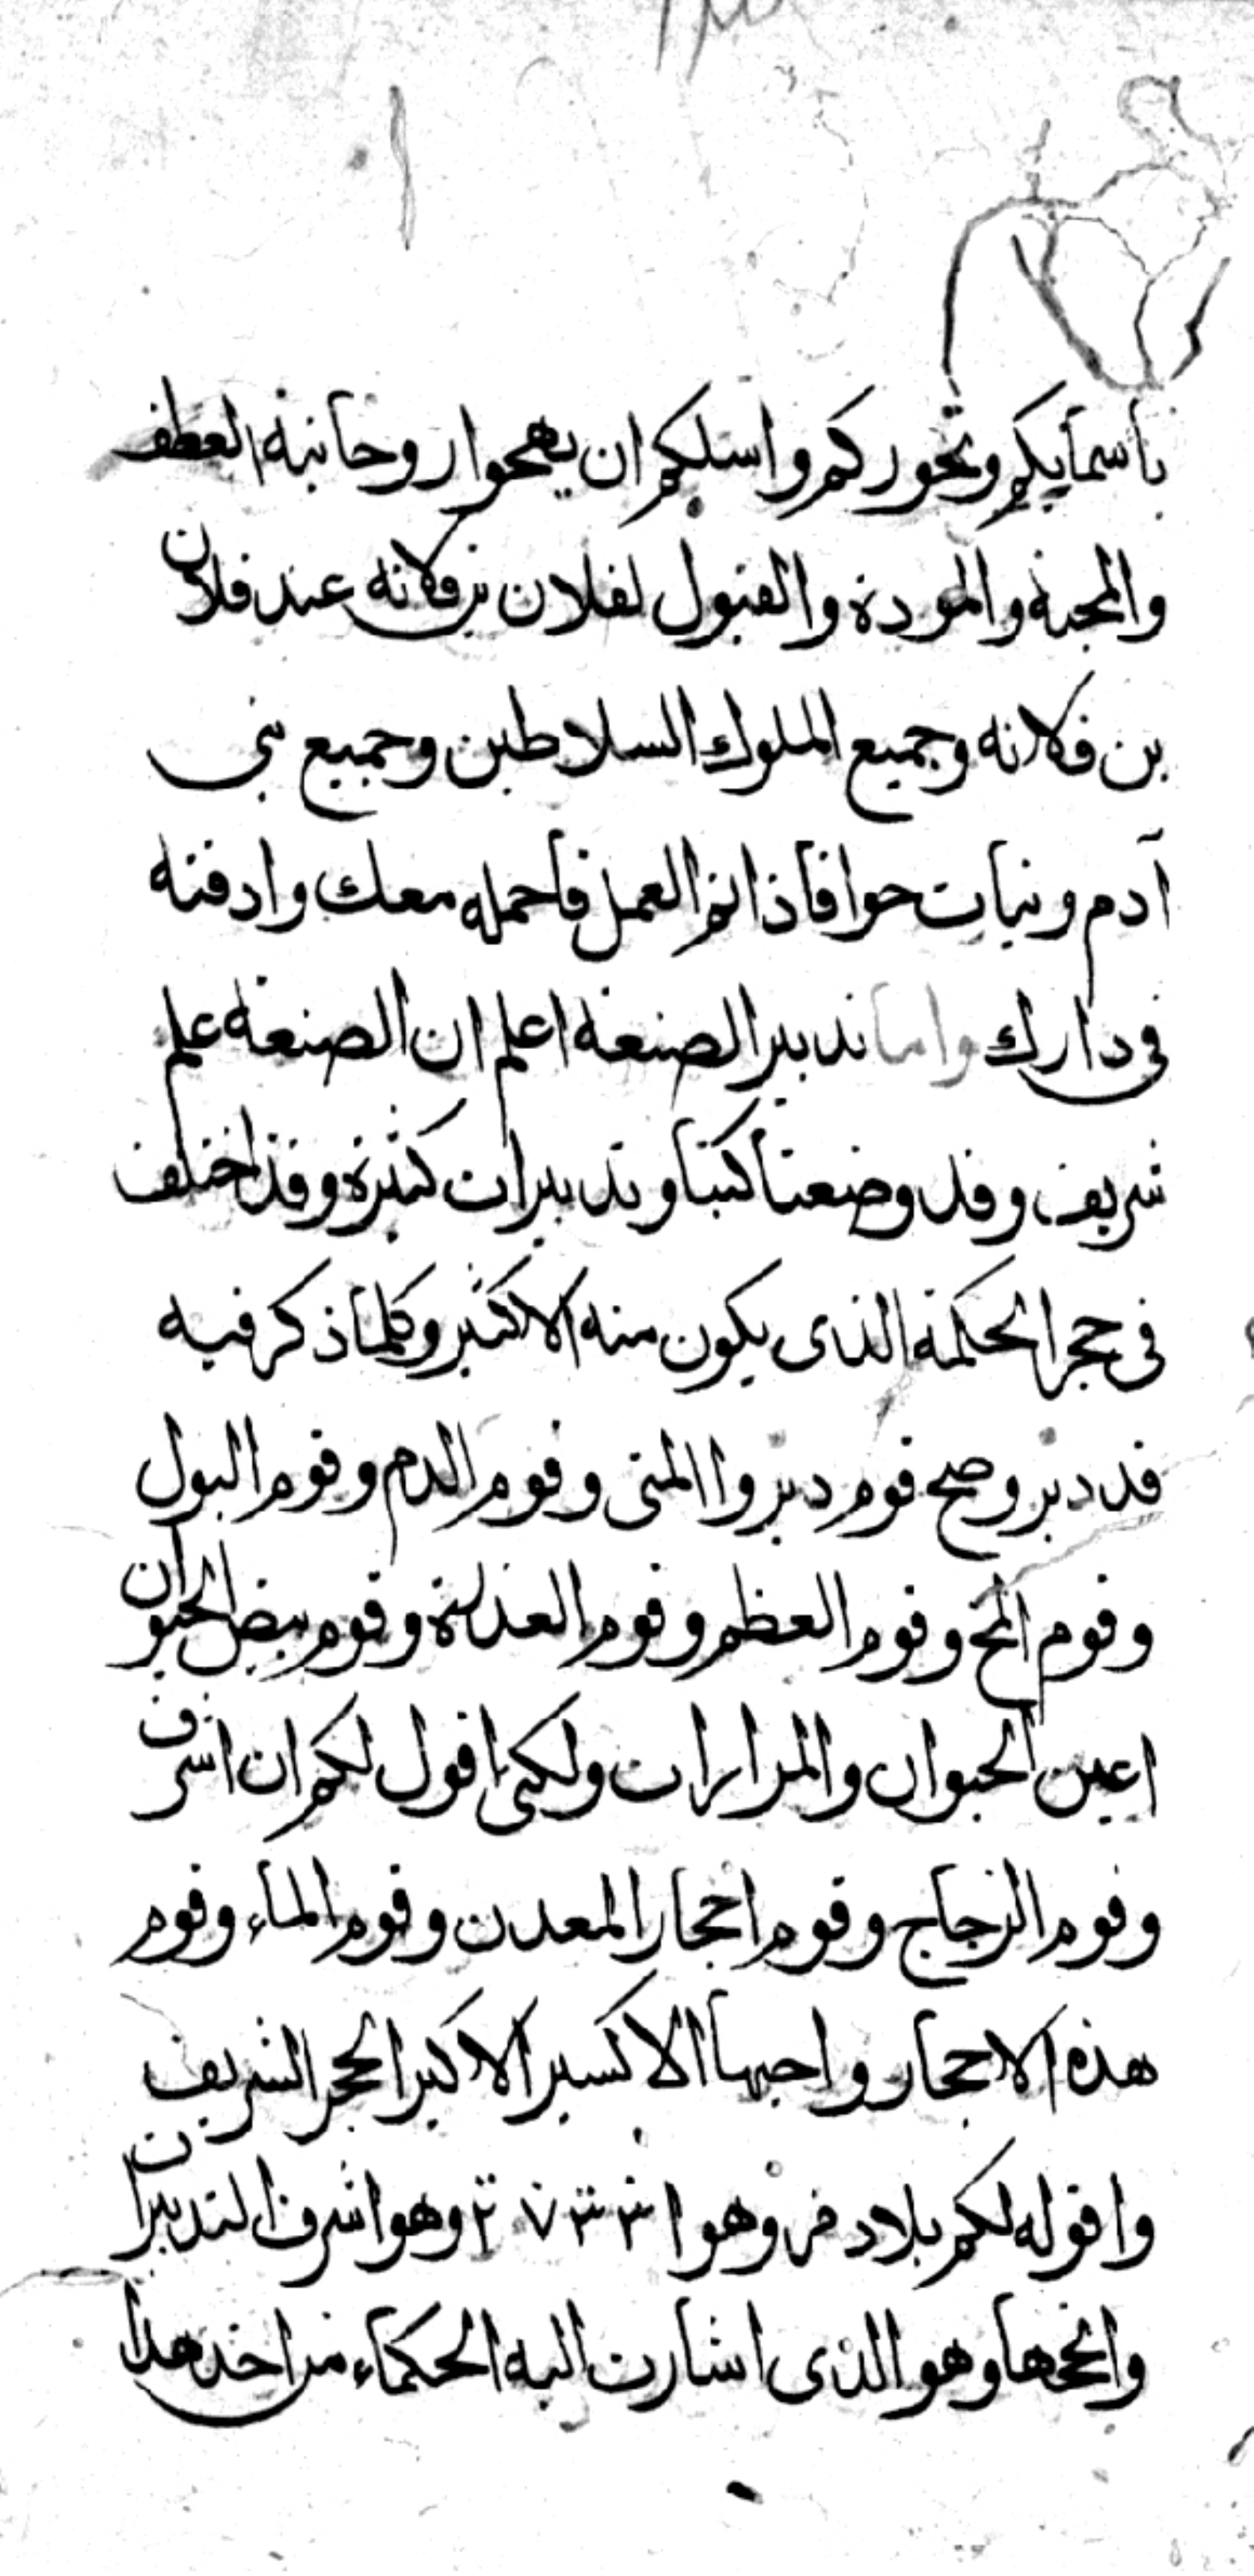 بأسمايكم وبخوركم واسلكم ان يهيجوا روحانية العطف
والمحبة والمودة والقبول لفلان بن فلانه عند فلان
بن فلانه وجميع الملوك السلاطين وجميع بنى
آدم وبنات حوا فاذا تم العمل فاحمله معك وادفنه
فى دارك واما تدبير الصنعة اعلم ان الصنعة علم
شريف وقد وضعنا كتبا وتدبيرات كثيرة وقد اختلف
فى حجر الحكمة الذى يكون منه الاكثير وكلما ذكر فيه
قد دبر وصح قوم دبروا المنى وقوم الدم وقوم البول
وقوم المخ وقوم العظم وقوم العذرة وقوم بيض الحيوان
اعين الحيوان والمرارات ولكنى اقول لكم ان اشرف
وقوم الزجاج وقوم احجار المعدن وقوم الماء وقوم
هذه الاحجار واحبها الاكسير الاكبر الحجر الشريف
واقوله لكم بلا رمز وهو ا ٣ ٣ ٧ ٢ وهو اشرف التدبيرات
وانجحها وهو الذى اشارت اليه الحكماء من اخذ هذا